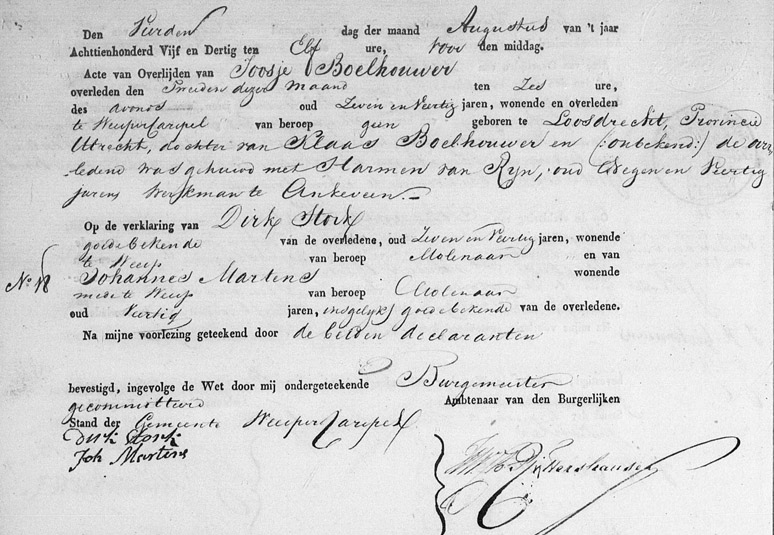 Den Vierden dag der maand Augustus van 't jaar
Achttienhonderd Vijf en Dertig ten Elf ure, voor den middag.
Acte van Overlijden van Joosje Boelhouwer
overleden den Tweeden dezer maand ten Zes ure,
des avonds oud Zeven en Veertig jaren, wonende en overleden
te Weespercarspel van beroep geen geboren te Loosdrecht, Provincie
Utrecht, dochter van Klaas Boelhouwer en (:onbekend:) de over
ledene was gehuwd met Harmen van Ryn, oud Negen en Veertig
jaren Werkman te Ankeveen.
Op de verklaring van Dirk Stork
goedebekende van de overledene, oud Zeven en Veertig jaren, wonende
te Weesp van beroep Molenaar en van
No 18 Johannes Martens wonende
mede te Weesp van beroep Molenaar
oud Veertig jaren, insgelyks goedebekende van de overledene.
Na mijne voorlezing geteekend door de beiden declaranten
bevestigd, ingevolge de Wet door mij ondergeteekende Burgemeester
gecommitteerd Ambtenaar van den Burgerlijken
Stand der Gemeente Weespercarspel
Dirk Stork
Joh Martens